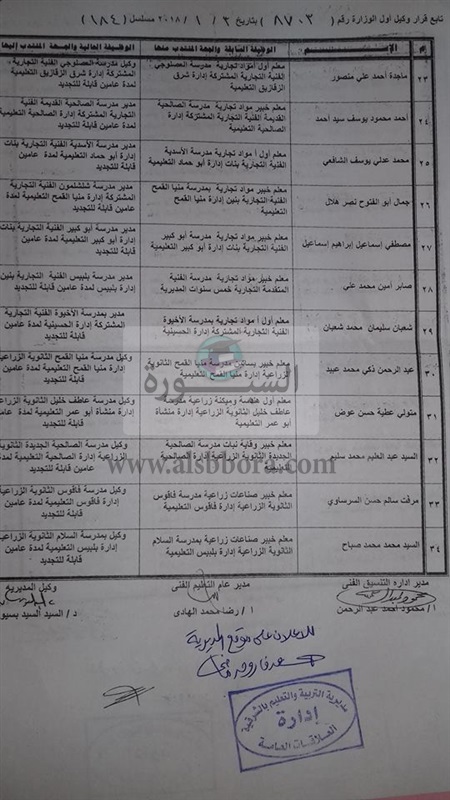 تابع قرار وكيل أول الوزارة رقم ( ٨٧٠٣ ) بتاريخ ٢ / ١ / ٢٠١٨ مسلسل ( ١٨٤ )
م
الإســـم
الوظيفة السابقة والجهة المنتدب منها
الوظيفة الحالية والجهة المنتدب إليها
٢٣
ماجدة أحمد علي منصور
معلم أول أ مواد تجارية مدرسة العصلوجي
الفنية التجارية المشتركة إدارة شرق
الزقازيق التعليمية
وكيل مدرسة العصلوجي الفنية التجارية
المشتركة إدارة شرق الزقازيق التعليمية
لمدة عامين قابلة للتجديد
٢٤
أحمد محمود يوسف سيد أحمد
معلم خبير مواد تجارية مدرسة الصالحية
القديمة الفنية التجارية المشتركة إدارة
الصالحية التعليمية
مدير مدرسة الصالحية القديمة الفنية
التجارية المشتركة إدارة الصالحية التعليمية
لمدة عامين قابلة للتجديد
٢٥
محمد عدلي يوسف الشافعي
معلم أول أ مواد تجارية مدرسة الأسدية
الفنية التجارية بنات إدارة أبو حماد التعليمية
مدير مدرسة الأسدية الفنية التجارية بنات
إدارة أبو حماد التعليمية لمدة عامين
قابلة للتجديد
٢٦
جمال أبو الفتوح نصر هلال
معلم خبير مواد تجارية بمدرسة منيا القمح
الفنية التجارية بنين إدارة منيا القمح
التعليمية
مدير مدرسة شلشلمون الفنية التجارية
المشتركة إدارة منيا القمح التعليمية لمدة
عامين قابلة للتجديد
٢٧
مصطفي إسماعيل إبراهيم إسماعيل
معلم خبير مواد تجارية مدرسة أبو كبير
الفنية التجارية بنات إدارة أبو كبير التعليمية
مدير مدرسة أبو كبير الفنية التجارية بنات
إدارة أبو كبير التعليمية لمدة عامين
قابلة للتجديد
٢٨
صابر أمين محمد علي
معلم خبير مواد تجارية مدرسة الفنية
المتقدمة التجارية خمس سنوات المديرية
مدير مدرسة بلبيس الفنية التجارية بنين
إدارة بلبيس لمدة عامين قابلة للتجديد
٢٩
شعبان سليمان محمد شعبان
معلم أول أ مواد تجارية بمدرسة الأخيوة
الفنية التجارية المشتركة إدارة الحسينية
مدير بمدرسة الأخيوة الفنية التجارية
المشتركة إدارة الحسينية لمدة عامين
قابلة للتجديد
٣٠
عبد الرحمن ذكي محمد عبيد
معلم خبير بساتين مدرسة منيا القمح الثانوية
الزراعية إدارة منيا القمح التعليمية
وكيل مدرسة منيا القمح الثانوية الزراعية
إدارة منيا القمح التعليمية لمدة عامين
قابلة للتجديد
٣١
متولي عطية حسن عوض
معلم أول هندسة وميكنة زراعية مدرسة
عاطف خليل الثانوية الزراعية إدارة منشأة
أبو عمر التعليمية
وكيل مدرسة عاطف خليل الثانوية
الزراعية إدارة منشأة أبو عمر التعليمية
لمدة عامين قابلة للتجديد
٣٢
السيد عبد العليم محمد سليم
معلم خبير وقاية نبات مدرسة الصالحية
الجديدة الثانوية الزراعية إدارة الصالحية
التعليمية
وكيل مدرسة الصالحية الجديدة الثانوية
الزراعية إدارة الصالحية التعليمية لمدة
عامين قابلة للتجديد
٣٣
مرفت سالم حسن السرساوي
معلم خبير صناعات زراعية مدرسة فاقوس
الثانوية الزراعية إدارة فاقوس التعليمية
وكيل مدرسة فاقوس الثانوية الزراعية
إدارة فاقوس التعليمية لمدة عامين
قابلة للتجديد
٣٤
السيد محمد محمد صباح
معلم خبير صناعات زراعية بمدرسة السلام
الثانوية الزراعية إدارة بلبيس التعليمية
وكيل بمدرسة السلام الثانوية الزراعية
إدارة بلبيس التعليمية لمدة عامين
قابلة للتجديد
السبورة
www.alsbbora.com
مدير إدارة التنسيق الفنى
مدير عام التعليم الفنى
وكيل المديرية
أ/ محمود أحمد عبد الرحمن
أ / رضا محمد الهادى
د / السيد السيد بسيو
للإعلان على موقع المديرية
مديرية التربية والتعليم بالشرقية
إدارة
العلاقات العامة